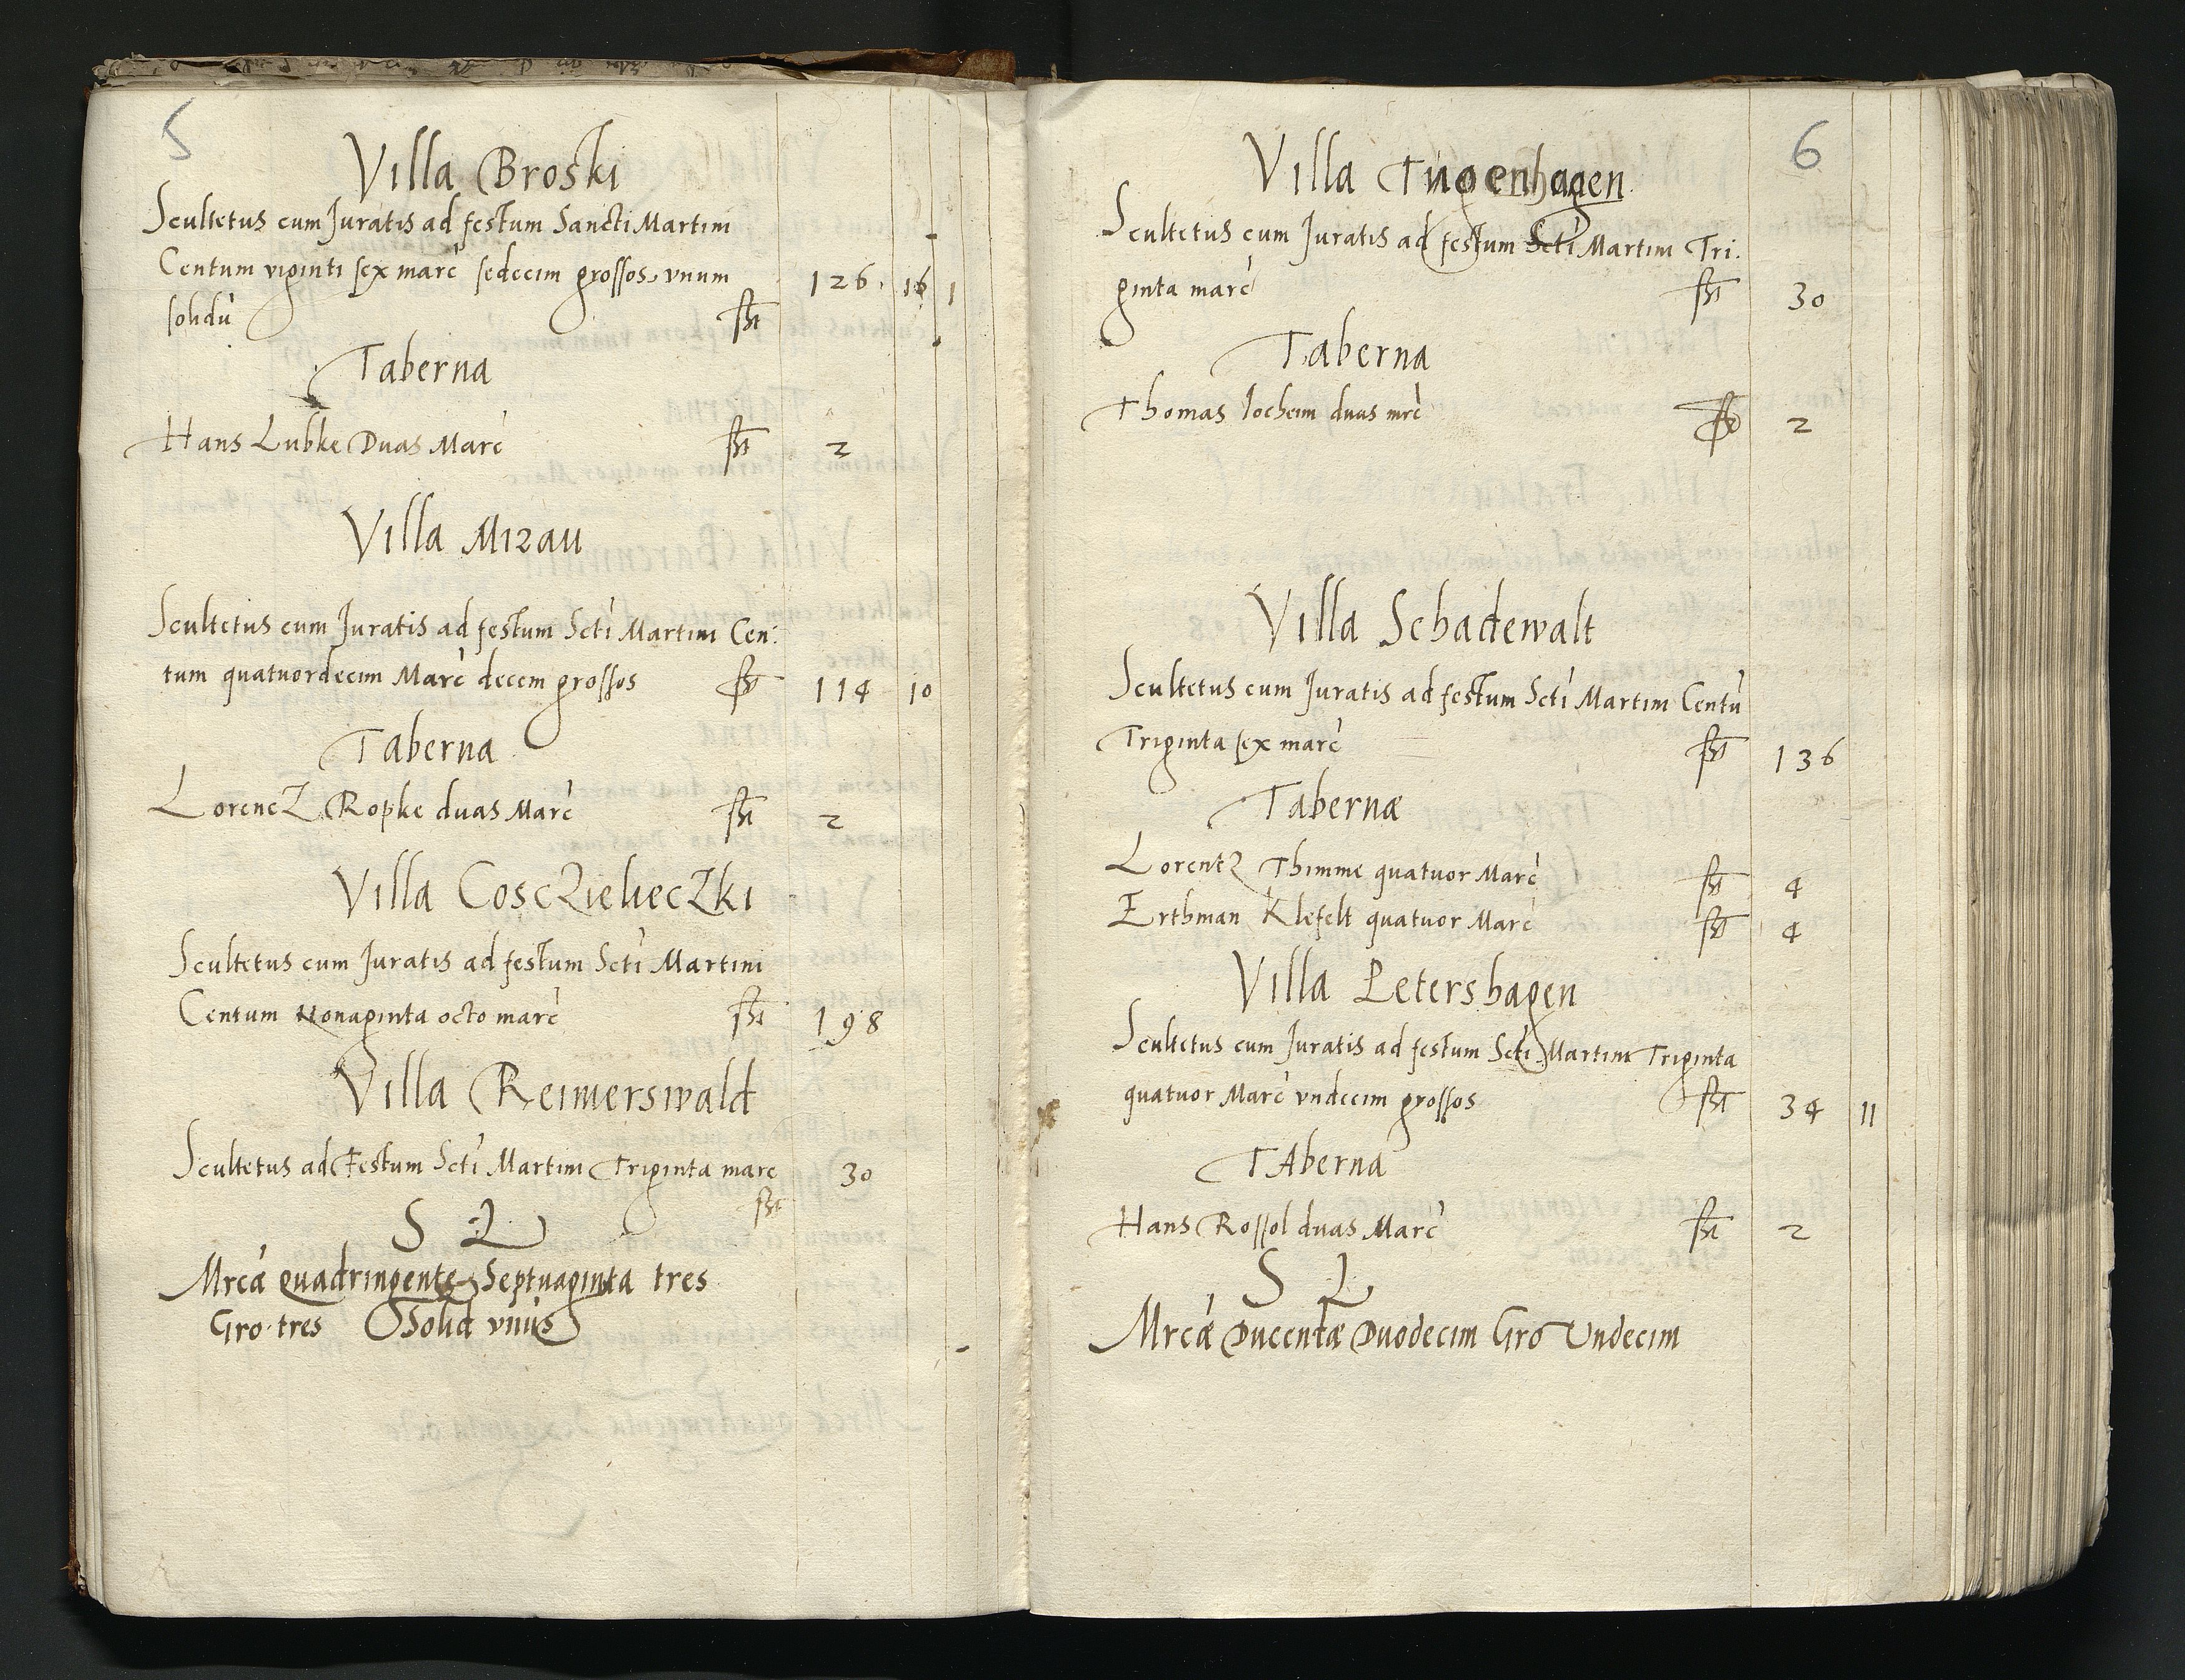 5
Villa Broski
Scultetus cum Juratis ad festum Sancti Martini
Centum viginti sex marc sedecim grossos, vnum 126 16 1
solidu
Taberna
Hans Lubke Duas Marc 2
Villa Mizau
Scultetus cum Juratis ad festum Scti Martini Cen:
tum quatuordecim Marc decem grossos 114 10
Taberna
Lorencz Ropke duas Marc 2
Villa Cosczielieczki
Scultetus cum Juratis ad festum Scti Martini
Centum Nonaginta octo marc 198
Villa Reimerswald
Scultetus ad Festum Scti Martini Triginta marc 30
S L
Mrca quadringente Septuaginta tres
Gro. tres Solid vnus
6
Villa Tugenhagen
Scultetus cum Juratis ad festum Scti Martini Tri.
ginta marc 30
Taberna
Thomas Jocheim duas mrc 2
Villa Schadewalt
Scultetus cum Juratis ad festum Scti Martini Centu
Triginta sex marc 136
Tabernæ
Lorentz Thimme quatuor Marc 4
Erthman Klefelt quatuor Marc 4
Villa Petershagen
Scultetus cum Juratis ad festum Scti Martini Triginta
quatuor Marc vndecim grossos 34 11
TAberna
Hans Rossol duas Marc 2
S L
Mrcæ Ducentæ Duodecim Gro Undecim